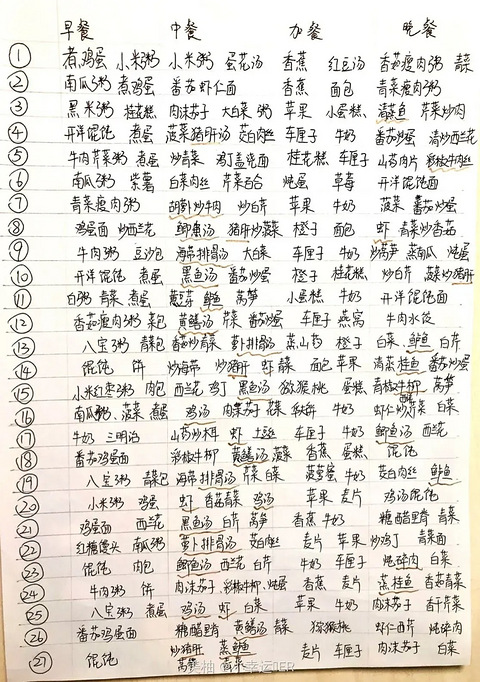 早餐 中餐 加餐 晚餐
① 煮鸡蛋 小米粥 小米粥 蛋花汤 香蕉 红豆汤 香茄瘦肉粥 青菜
② 南瓜粥 煮鸡蛋 番茄虾仁面 香蕉 面包 青菜瘦肉粥
③ 黑米粥 桂花糕 肉沫茄子 大白菜 粥 苹果 小蛋糕 清蒸鱼 芹菜炒肉
④ 开洋馄饨 煮蛋 菠菜猪肝汤 茭白肉丝 车厘子 牛奶 番茄炒蛋 清炒西兰花
⑤ 牛肉芹菜粥 煮蛋 炒青菜 鸡丁盖浇面 桂花糕 车厘子 山药肉片 彩椒牛肉丝
⑥ 南瓜粥 紫薯 白菜肉丝 芹菜百合 炖蛋 草莓 开洋馄饨面
⑦ 青菜瘦肉粥 胡萝卜炒牛肉 炒白芹 苹果 牛奶 菠菜 番茄炒蛋
⑧ 鸡蛋面 炒西兰花 鲫鱼汤 猪肝炒菠菜 橙子 面包 虾 青菜炒香菇
⑨ 牛肉粥 豆沙包 海带排骨汤 大白菜 车厘子 牛奶 炒莴笋 蒸南瓜 炖蛋
⑩ 开洋馄饨 煮蛋 黑鱼汤 番茄炒蛋 橙子 桂花糕 炒白芹 菠菜炒猪肝
⑪ 白粥 青菜 煮蛋 鲈鱼 莴笋 小蛋糕 牛奶 开洋馄饨面
⑫ 香菇瘦肉粥 菜包 黄鳝汤 芹菜 番茄炒蛋 车厘子 燕窝 牛肉水饺
⑬ 八宝粥 青菜包 香菇炒青菜 萝卜排骨汤 蒸山药 橙子 白菜 鲈鱼 白芹
⑭ 馄饨 饼 炒海带 炒猪肝 虾 青菜 面包 苹果 清蒸桂鱼 番茄炒蛋
⑮ 小米红枣粥 肉包 西兰花 鸡丁 黑鱼汤 猕猴桃 蛋糕 青椒牛柳 莴笋
⑯ 南瓜粥 菠菜 煮蛋 鸡汤 肉沫茄子 花菜 牛奶 虾仁炒菠菜 白菜
⑰ 牛奶 三明治 山药炒木耳 虾 土豆丝 车厘子 牛奶 鲫鱼汤 西兰花
⑱ 番茄鸡蛋面 彩椒牛柳 黄鳝汤 菠菜 香蕉 蛋糕 馄饨
⑲ 八宝粥 青菜包 海带排骨汤 芹菜 白菜 菠萝蜜 牛奶 茭白肉丝 鲈鱼
⑳ 小米粥 鸡蛋 虾 香菇青菜 鸡汤 苹果 麦片 鸡汤馄饨
㉑ 鸡蛋面 西兰花 黑鱼汤 白芹 莴笋 香蕉 牛奶 糖醋里脊 青菜
㉒ 红糖馒头 南瓜粥 萝卜排骨汤 茭白肉丝 麦片 苹果 炒鸡丁 青菜面
㉓ 馄饨 肉包 鲫鱼汤 西兰花 白芹 牛奶 车厘子 炖碎肉 白菜
㉔ 牛肉粥 饼 肉沫茄子 彩椒牛柳 炖蛋 香蕉 麦片 蒸桂鱼 香菇青菜
㉕ 八宝粥 煮蛋 鸡汤 虾 白菜 苹果 牛奶 肉沫茄子 香干芹菜
㉖ 番茄鸡蛋面 糖醋里脊 黄鳝汤 青菜 猕猴桃 虾仁西芹 炖碎肉
㉗ 馄饨 炒猪肝 蒸鲈鱼 麦片 车厘子 肉沫茄子 白菜
莴笋 青菜